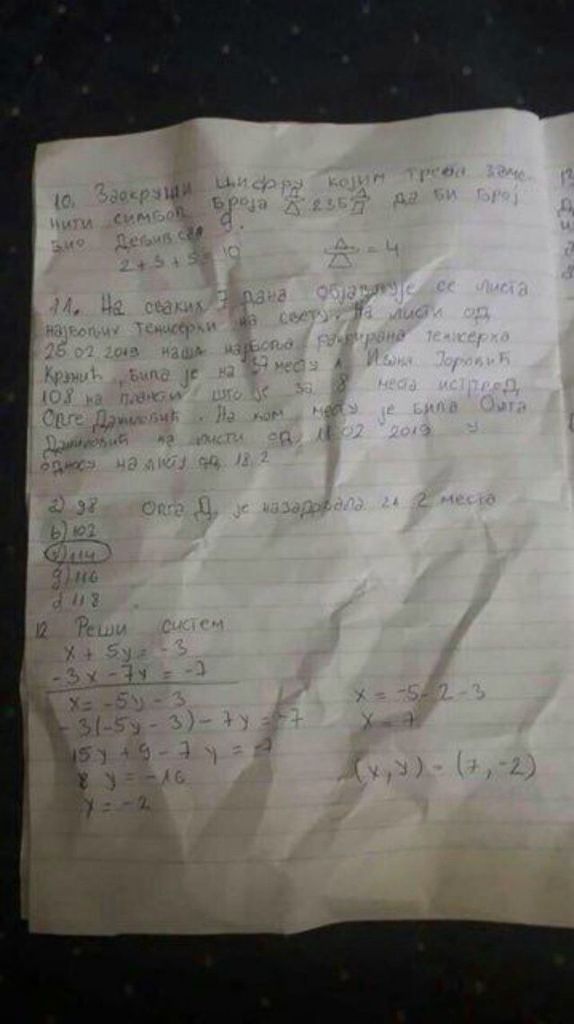 10. Заокружи цифру којим треба заме-
нити симбол броја 235 да би број
био дељив са 9.
2+3+5=10 = 4
11. На сваких 7 дана објављује се листа
најбољих тенисерки на свету. На листи од
25.02.2019 наша најбоље ранкирана тенисерка
Крунић, била је на 57 месту Ивана Јоровић
108 на што је за 8 места испред
Олге Даниловић. На ком месту је била Олга
Даниловић на листи од 11.02 2019 у
односу на листу од 18.2
а) 98 Олга Д. је назадовала за 2 места
b) 102
114
g) 116
d) 118
12 Реши систем
x + 5y = -3
-3x - 7y = -7
x = -5y - 3
-3(-5y - 3) - 7y = -7
15y + 9 - 7y = -7
8y = -16
y = -2
x = -5-2-3
x = 7
(x,y) = (7,-2)